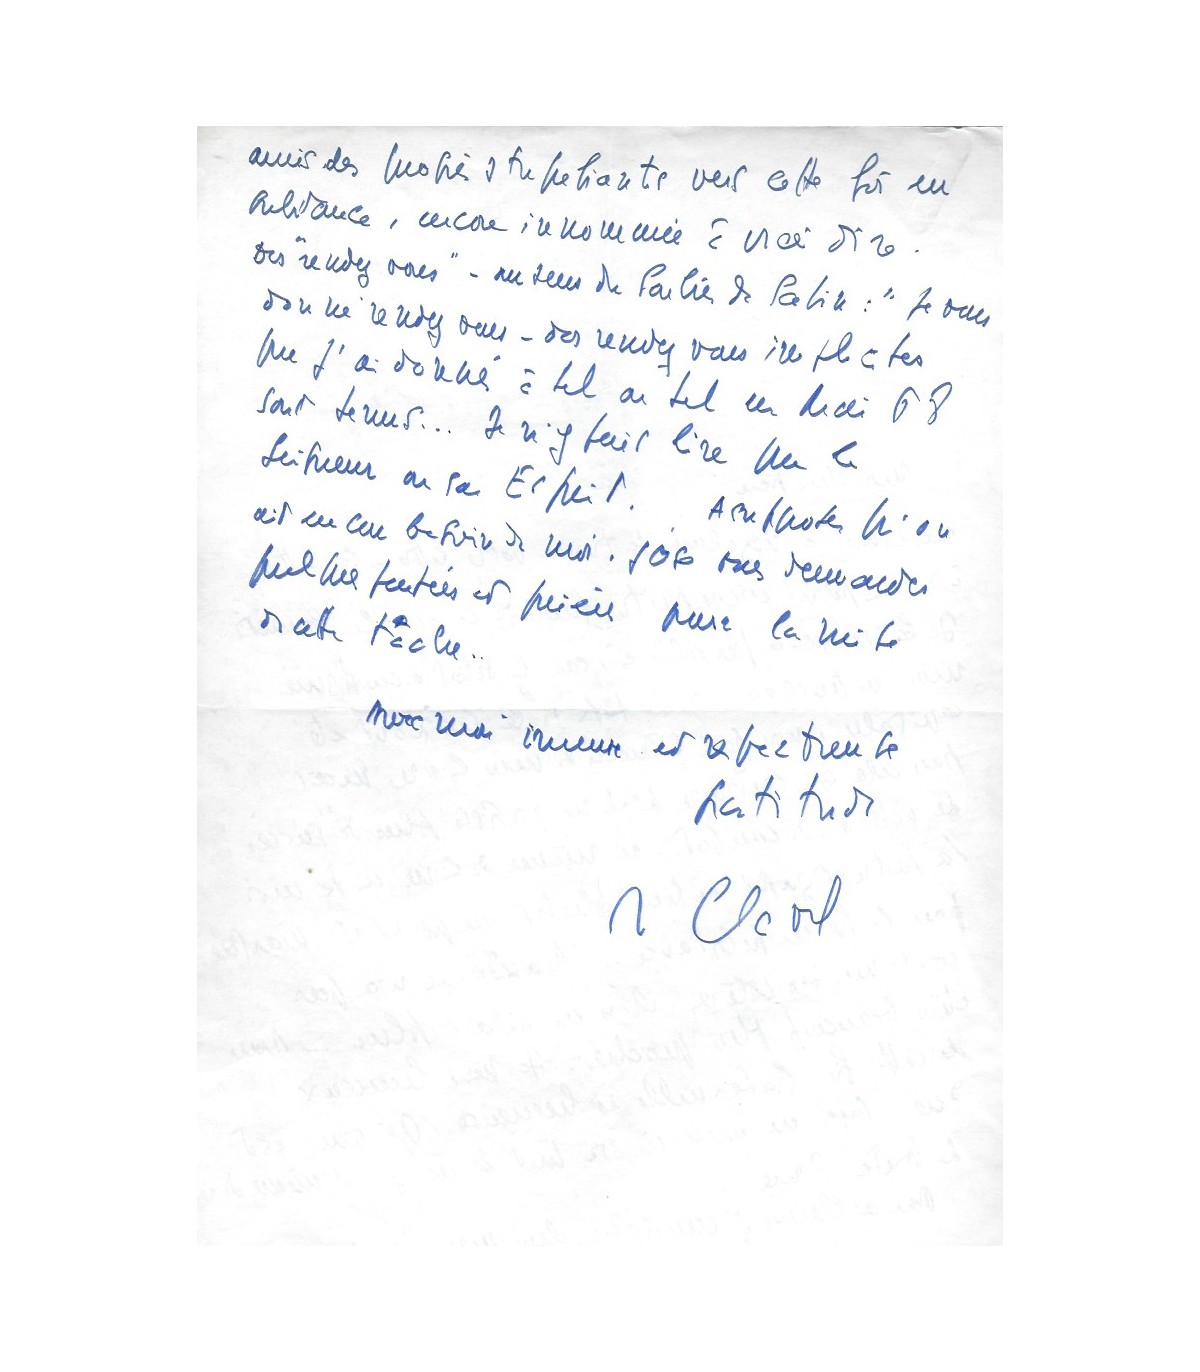 amis des progrès stupéfiants vers cette foi en
encore innommée à vrai dire.
Des "rendez vous" - au sens du Soulier de Satin : "Je vous
donne rendez vous - des rendez vous implicites
que j'ai donnés à tel ou tel en Mai 68
sont tenus... Je n'y puis lire que le
Seigneur ou son Esprit. A supposer qu'on
ait encore besoin de moi, j'ose vous demander
quelque pensées et prières pour la suite
de cette tâche..
Avec mon immense et respectueuse
gratitude
M Clavel